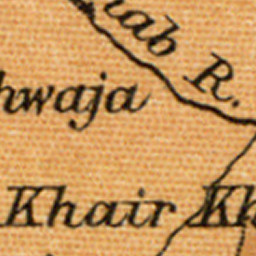 ab R.
hwaja
Khair Kh